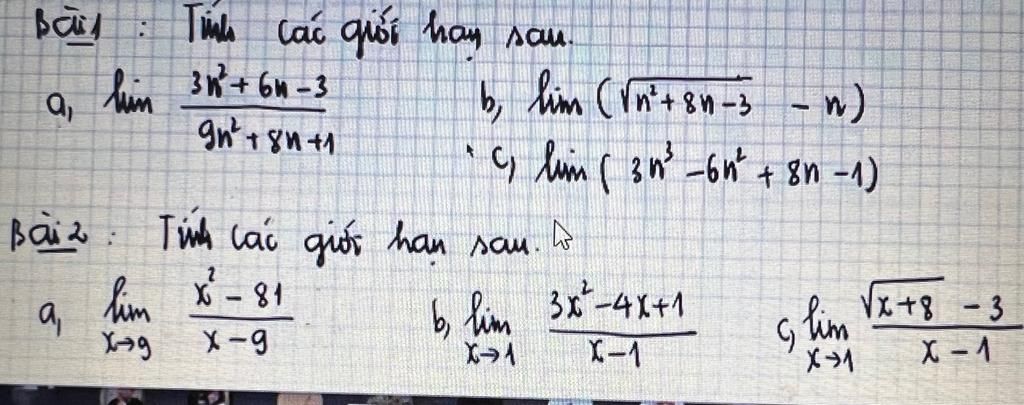 Bài 1 : Tính các giới hạn sau.
a, lim (3n² + 6n - 3)/(9n² + 8n + 1)
b, lim (√(n² + 8n - 3) - n)
c, lim ( 3n³ - 6n² + 8n - 1)
Bài 2 : Tính các giới hạn sau.
a, lim x→9 (x² - 81)/(x - 9)
b, lim x→1 (3x² - 4x + 1)/(x - 1)
c, lim x→1 (√(x + 8) - 3)/(x - 1)